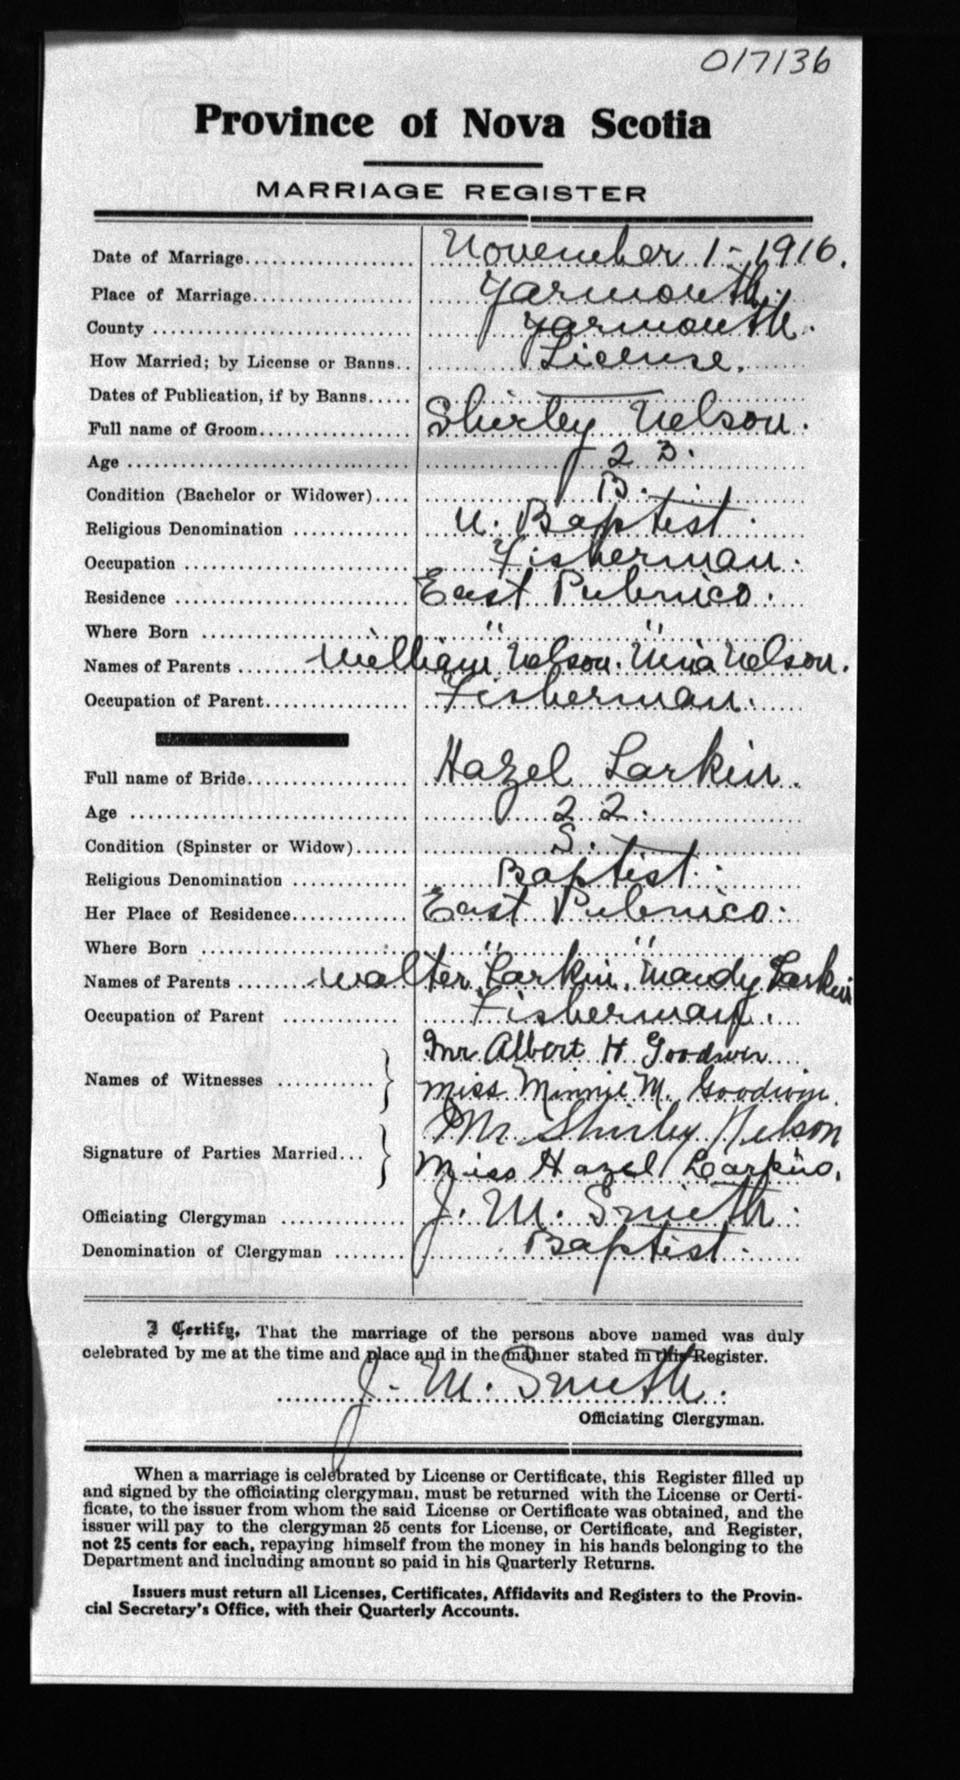 017136
Province of Nova Scotia
MARRIAGE REGISTER
Date of Marriage.................... November 1 - 1916.
Place of Marriage................... Yarmouth.
County ............................. Yarmouth.
How Married; by License or Banns.. License.
Dates of Publication, if by Banns..... —
Full name of Groom.................. Shirley Nelson.
Age ................................ 23.
Condition (Bachelor or Widower).... B.
Religious Denomination ............. U. Baptist.
Occupation ......................... Fisherman.
Residence .......................... East Pubnico.
Where Born ......................... " "
Names of Parents ...... William Nelson. Nelson.
Occupation of Parent................ Fisherman.
Full name of Bride.................. Hazel Larkin.
Age ................................ 22.
Condition (Spinster or Widow)...... S.
Religious Denomination ............. Baptist.
Her Place of Residence............. East Pubnico.
Where Born ......................... " "
Names of Parents ....... Walter Larkin, Mandy Larkin
Occupation of Parent ............. Fisherman.
Names of Witnesses ........... } Mr Albert H Goodwin
Miss Minnie M. Goodwin.
Signature of Parties Married... } Mr Shirley Nelson
Miss Hazel Larkin.
Officiating Clergyman .............. J. M. Smith.
Denomination of Clergyman ........ Baptist.
I Certify, That the marriage of the persons above named was duly
celebrated by me at the time and place and in the manner stated in this Register.
J. M. Smith.
Officiating Clergyman.
When a marriage is celebrated by License or Certificate, this Register filled up
and signed by the officiating clergyman, must be returned with the License or Certi-
ficate, to the issuer from whom the said License or Certificate was obtained, and the
issuer will pay to the clergyman 25 cents for License, or Certificate, and Register,
not 25 cents for each, repaying himself from the money in his hands belonging to the
Department and including amount so paid in his Quarterly Returns.
Issuers must return all Licenses, Certificates, Affidavits and Registers to the Provin-
cial Secretary's Office, with their Quarterly Accounts.